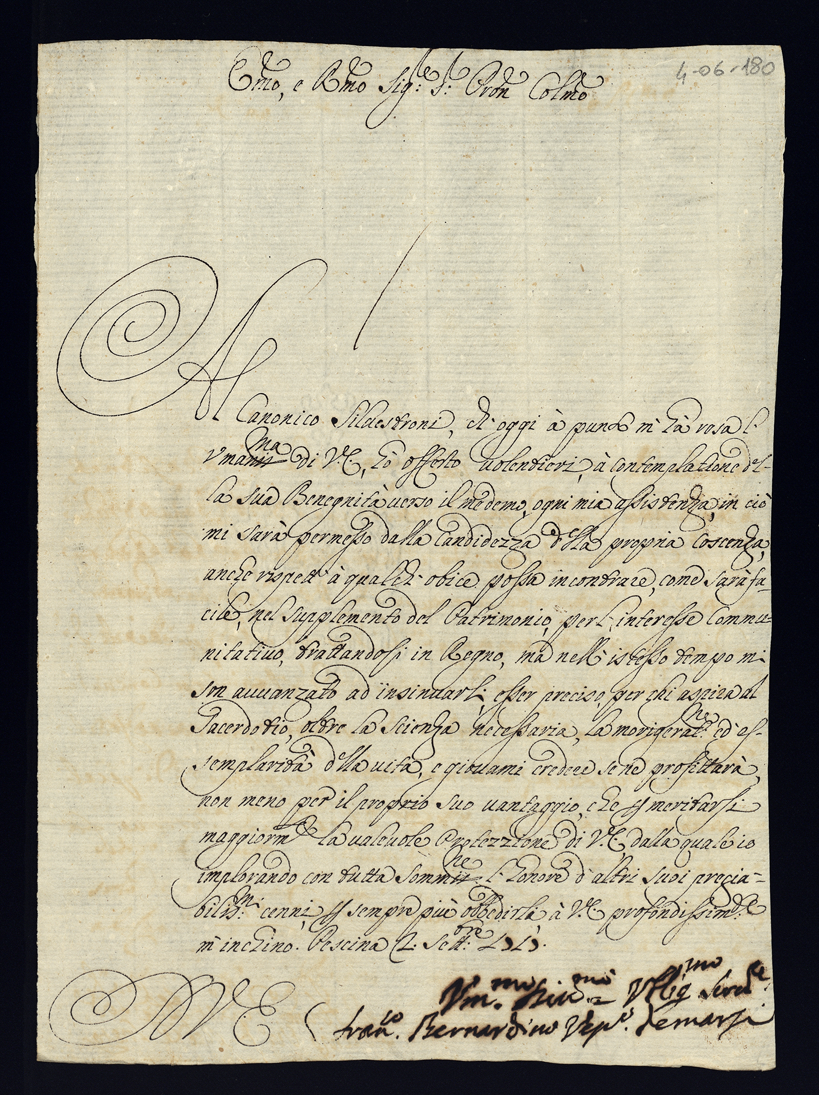 4-06-180
Emo, e Rmo Sig.r S.r Pron Colmo
Al Canonico Silvestroni, ch'oggi à punto m'hà resa l'
Vmanma di V.E., hò offerto volentieri, à contemplatione del-
la sua Benegnità verso il medemo, ogni mia assistenza, in ciò
mi sarà permesso dalla Candidezza della propria Coscenza,
anche rispett' à qualch' obice possa incontrare, come sarà fa-
cile, nel supplemento del Patrimonio, per l'interesse Commu-
nitativo, trattandosi in Regno, mà nell'istesso tempo mi
son avvanzato ad insinuarli, esser preciso, per chi aspira al
Sacerdotio, oltre la Scienza necessaria, la morigerat.ne ed es-
semplarità della vita, e giovami credere se ne profittarà,
non meno per il proprio suo vantaggio, che p meritarsi
maggiorm.te la valevole Protezzione di V.E. dalla quale io
implorando con tutta sommiss.ne l'honore d'altri suoi precia-
biliss.mi cenni, p sempre più obbedirla, à V.E. profondissim.te
m'inchino. Pescina 2. Sett.bre 1717.
Vm.mo Div.mo Obblig.mo Serv.re
V.E. Fran.co Bernardino Vesc.o de Marsi